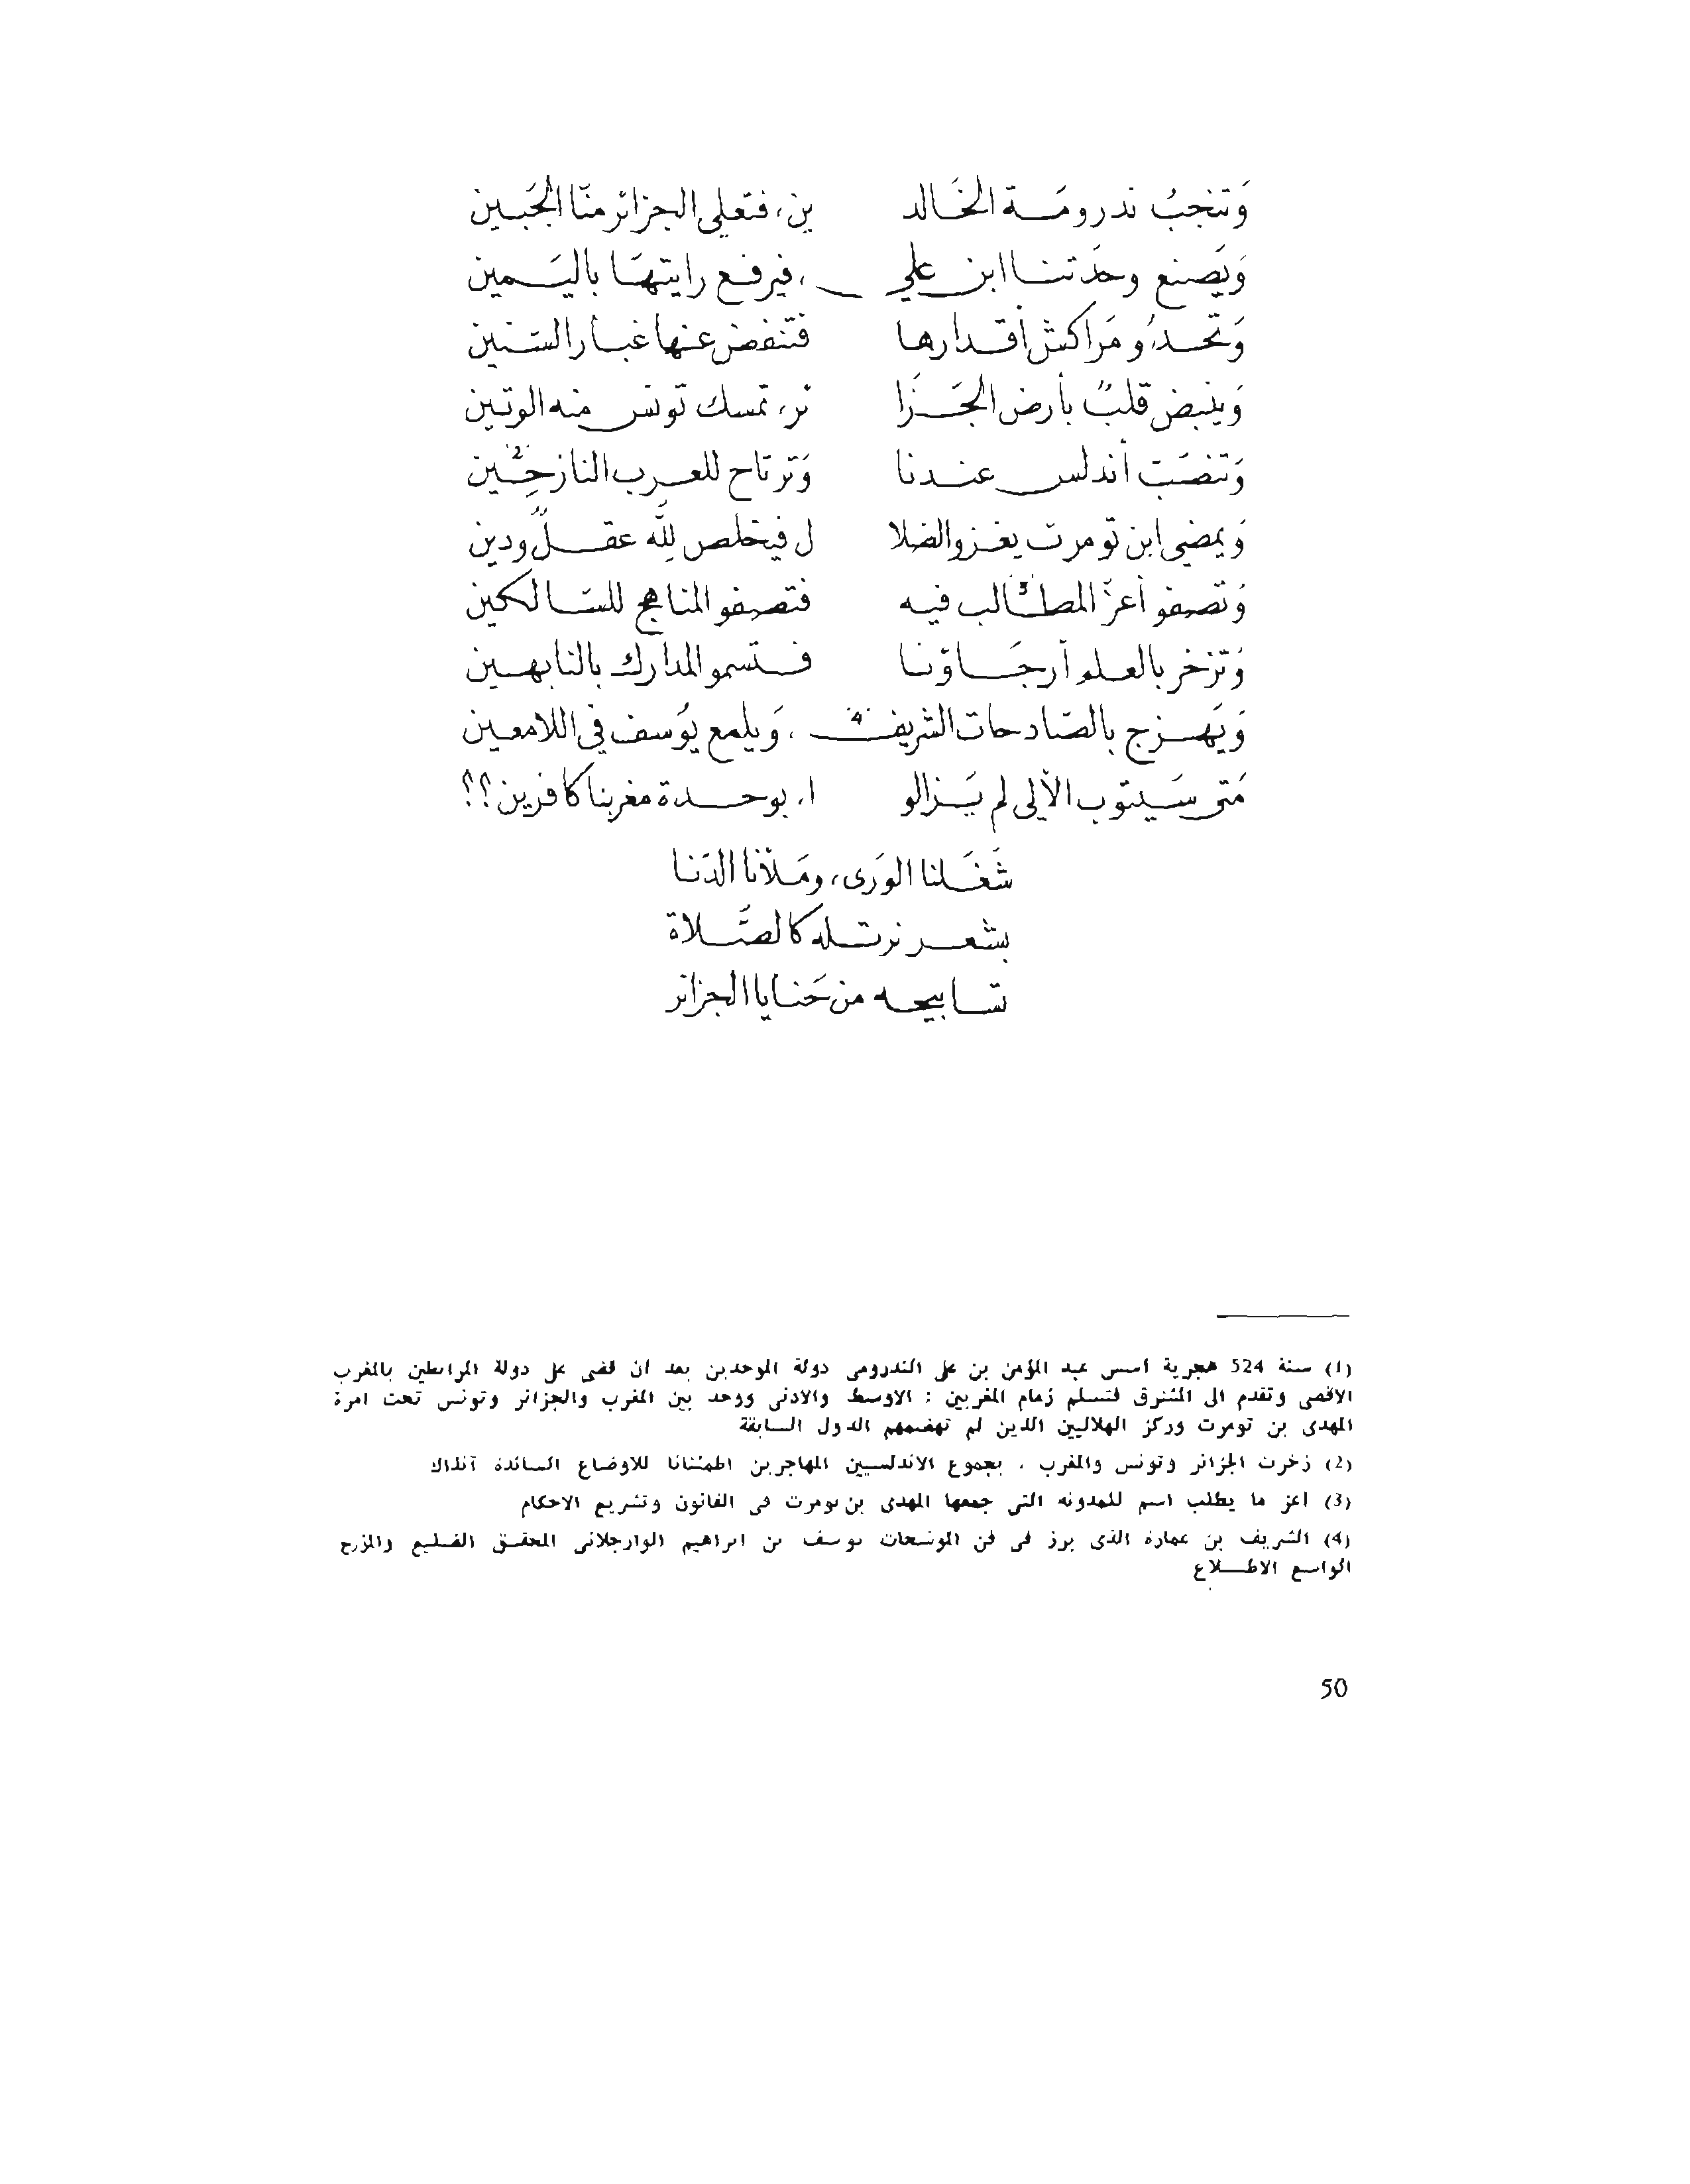 وَتنجبُ ندرومَة الخَالد بن، فتعلي الجزائر منّا الجَبين
وَيَصنع وحدَتنا ابن علي ، فيرفع رايتهَا باليَمين
وَتحدُو مَراكش أقدارها فتنفض عنها غبار السّنين
وَينبض قلبٌ بأرض الجَزَا ئر، تمسك تونس منه الوتين
وَتنصَبّ أندلس عندنا وَترتاح للعرب النازحِين (2)
وَيمضي ابن تومرت يغزو الضلا ل فيخلص لِلَّه عقلٌ ودين
وَتصفو أعزّ المطالب (3) فيه فتصفو المناهج للسّالكين
وَتزخر بالعلم أرجَاؤنا فتسمو المدارك بالنابهين
وَيَهزج بالصّادحات الشريف (4) ، وَيلمع يُوسف في اللامعين
مَتى سَيتوب الألى لم يَزالو ا، بوحدة مغربنا كافرين؟؟
شَغَلنا الوَرَى، ومَلأنا الدّنا
بشعر نرتله كالصَّلاة
تسابيحه من حَنايا الجزائر
(1) سنة 524 هجرية أسس عبد المؤمن بن على الندرومى دولة الموحدين بعد ان قضى على دولة المرابطين بالمغرب
الاقصى وتقدم الى الشرق فتسلم زمام المغربين : الاوسط والادنى ووحد بين المغرب والجزائر وتونس تحت امرة
المهدى بن تومرت وركز الهلاليين الذين لم تهضمهم الدول السابقة
(2) زخرت الجزائر وتونس والمغرب ، بجموع الاندلسيين المهاجرين اطمئنانا للاوضاع السائدة آنذاك
(3) اعز ما يطلب اسم للمدونه التى جمعها المهدى بن تومرت فى القانون وتشريع الاحكام
(4) الشريف بن عمارة الذى برز فى فن الموشحات يوسف بن ابراهيم الوارجلانى المحقق الضليع والمؤرخ
الواسع الاطلاع
50